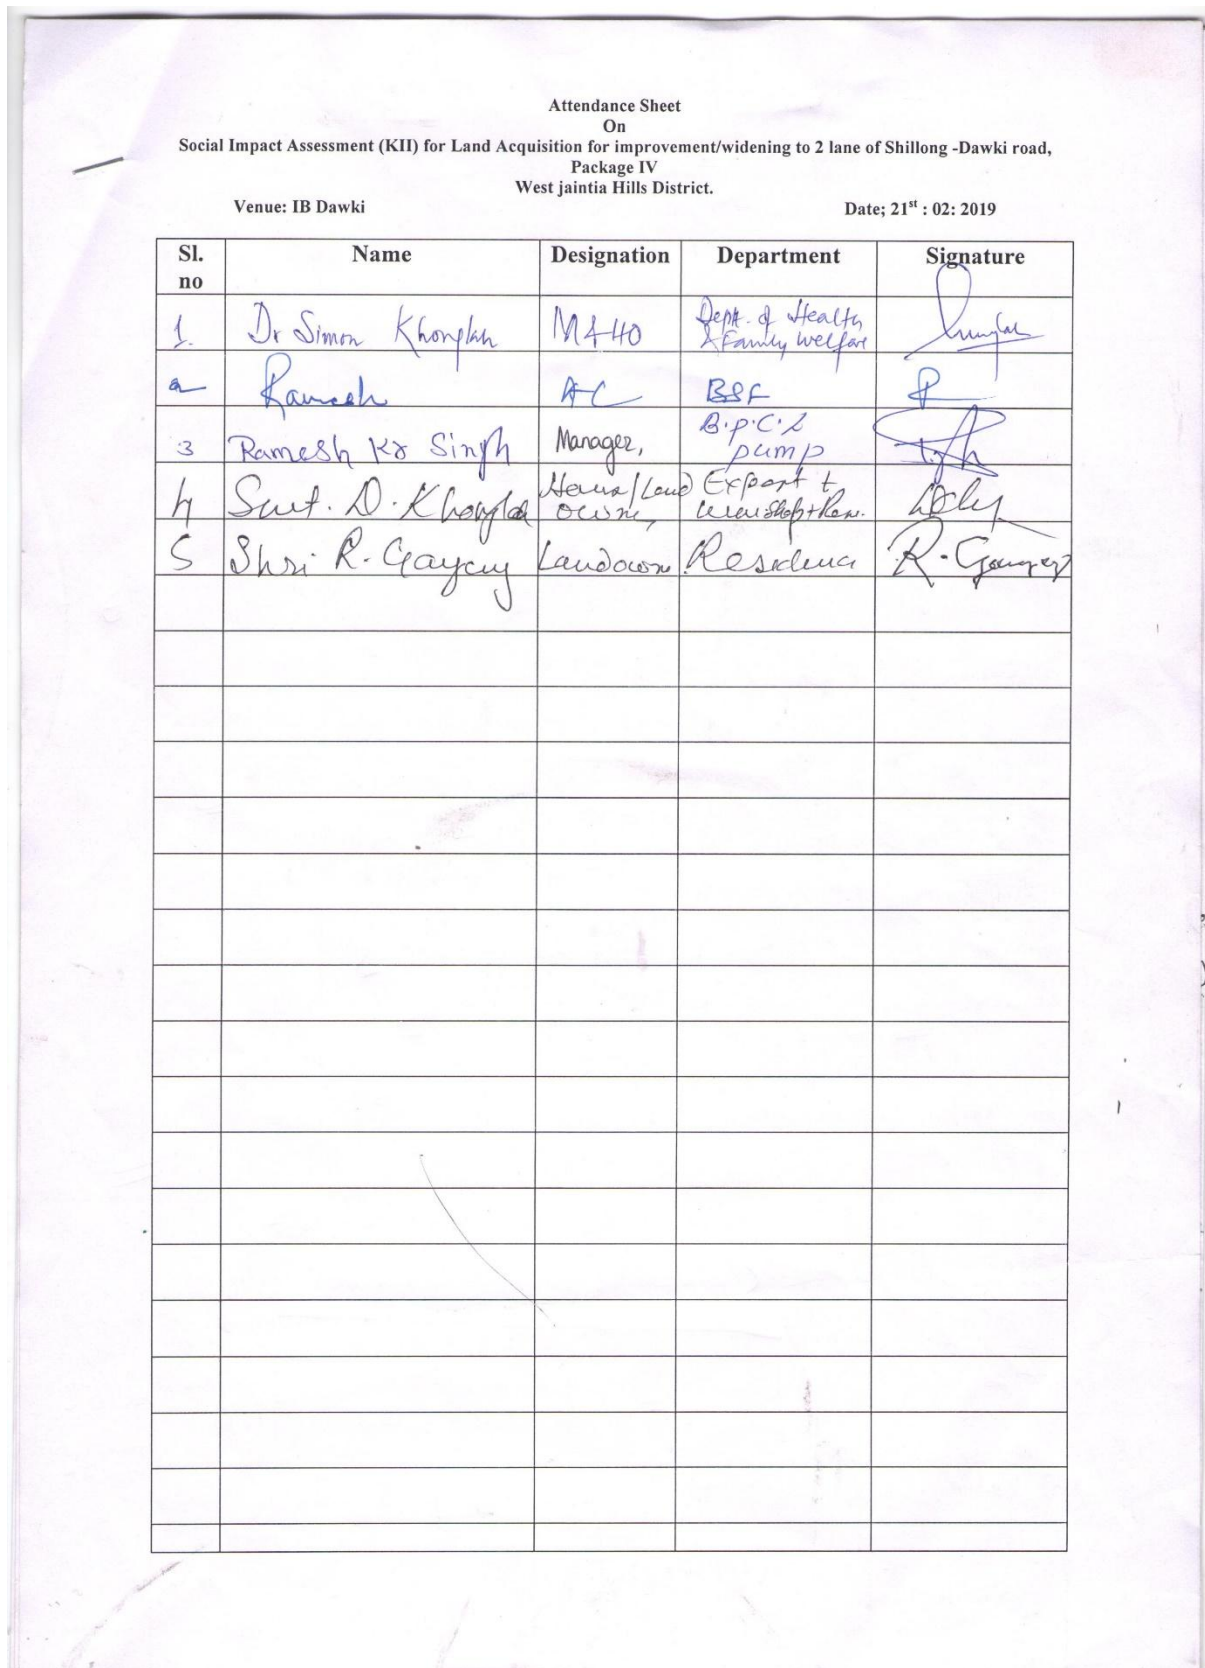 Attendance Sheet
On
Social Impact Assessment (KII) for Land Acquisition for improvement/widening to 2 lane of Shillong -Dawki road,
Package IV
West jaintia Hills District.
Venue: IB Dawki Date; 21st : 02: 2019
Sl. no Name Designation Department Signature
1. Dr Simon Khonglah M&HO Dept. of Health & Family Welfare
2 Ramesh AC BSF
3 Ramesh Kr Singh Manager, B.P.C.L pump
4 Smt. D. Khonglah House/Land owner Export +
5 Shri R. Gayang Landowner Residence R. Gayang